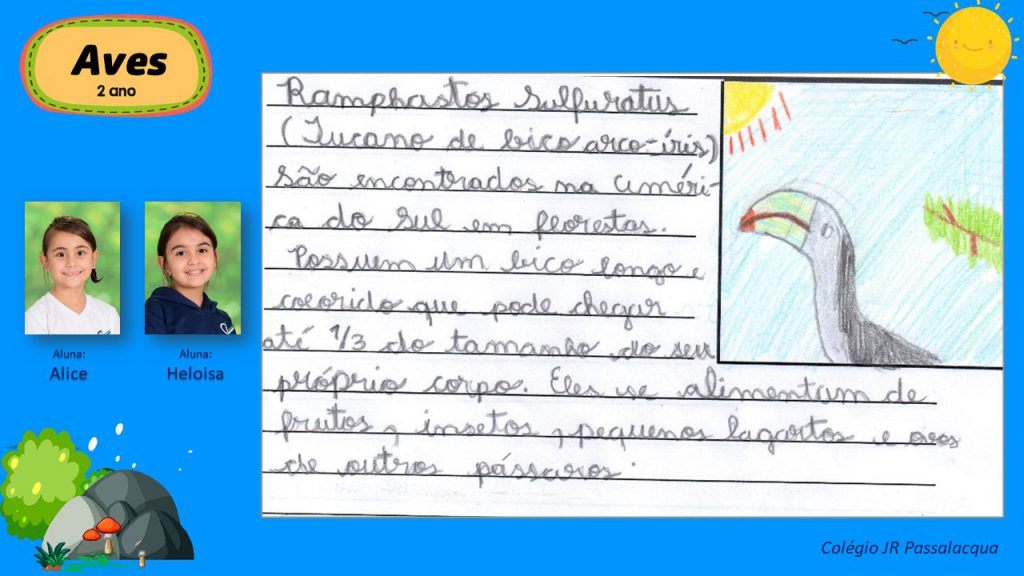 Aves
2 ano
Ramphastos Sulfuratus
(Tucano de bico arco-íris)
são encontrados na améri-
ca do sul em florestas.
Possuem um bico longo e
colorido que pode chegar
até 1/3 do tamanho do seu
próprio corpo. Eles se alimentam de
frutos, insetos, pequenos lagartos e ovos
de outros pássaros.
Aluna:
Alice
Aluna:
Heloisa
Colégio JR Passalacqua